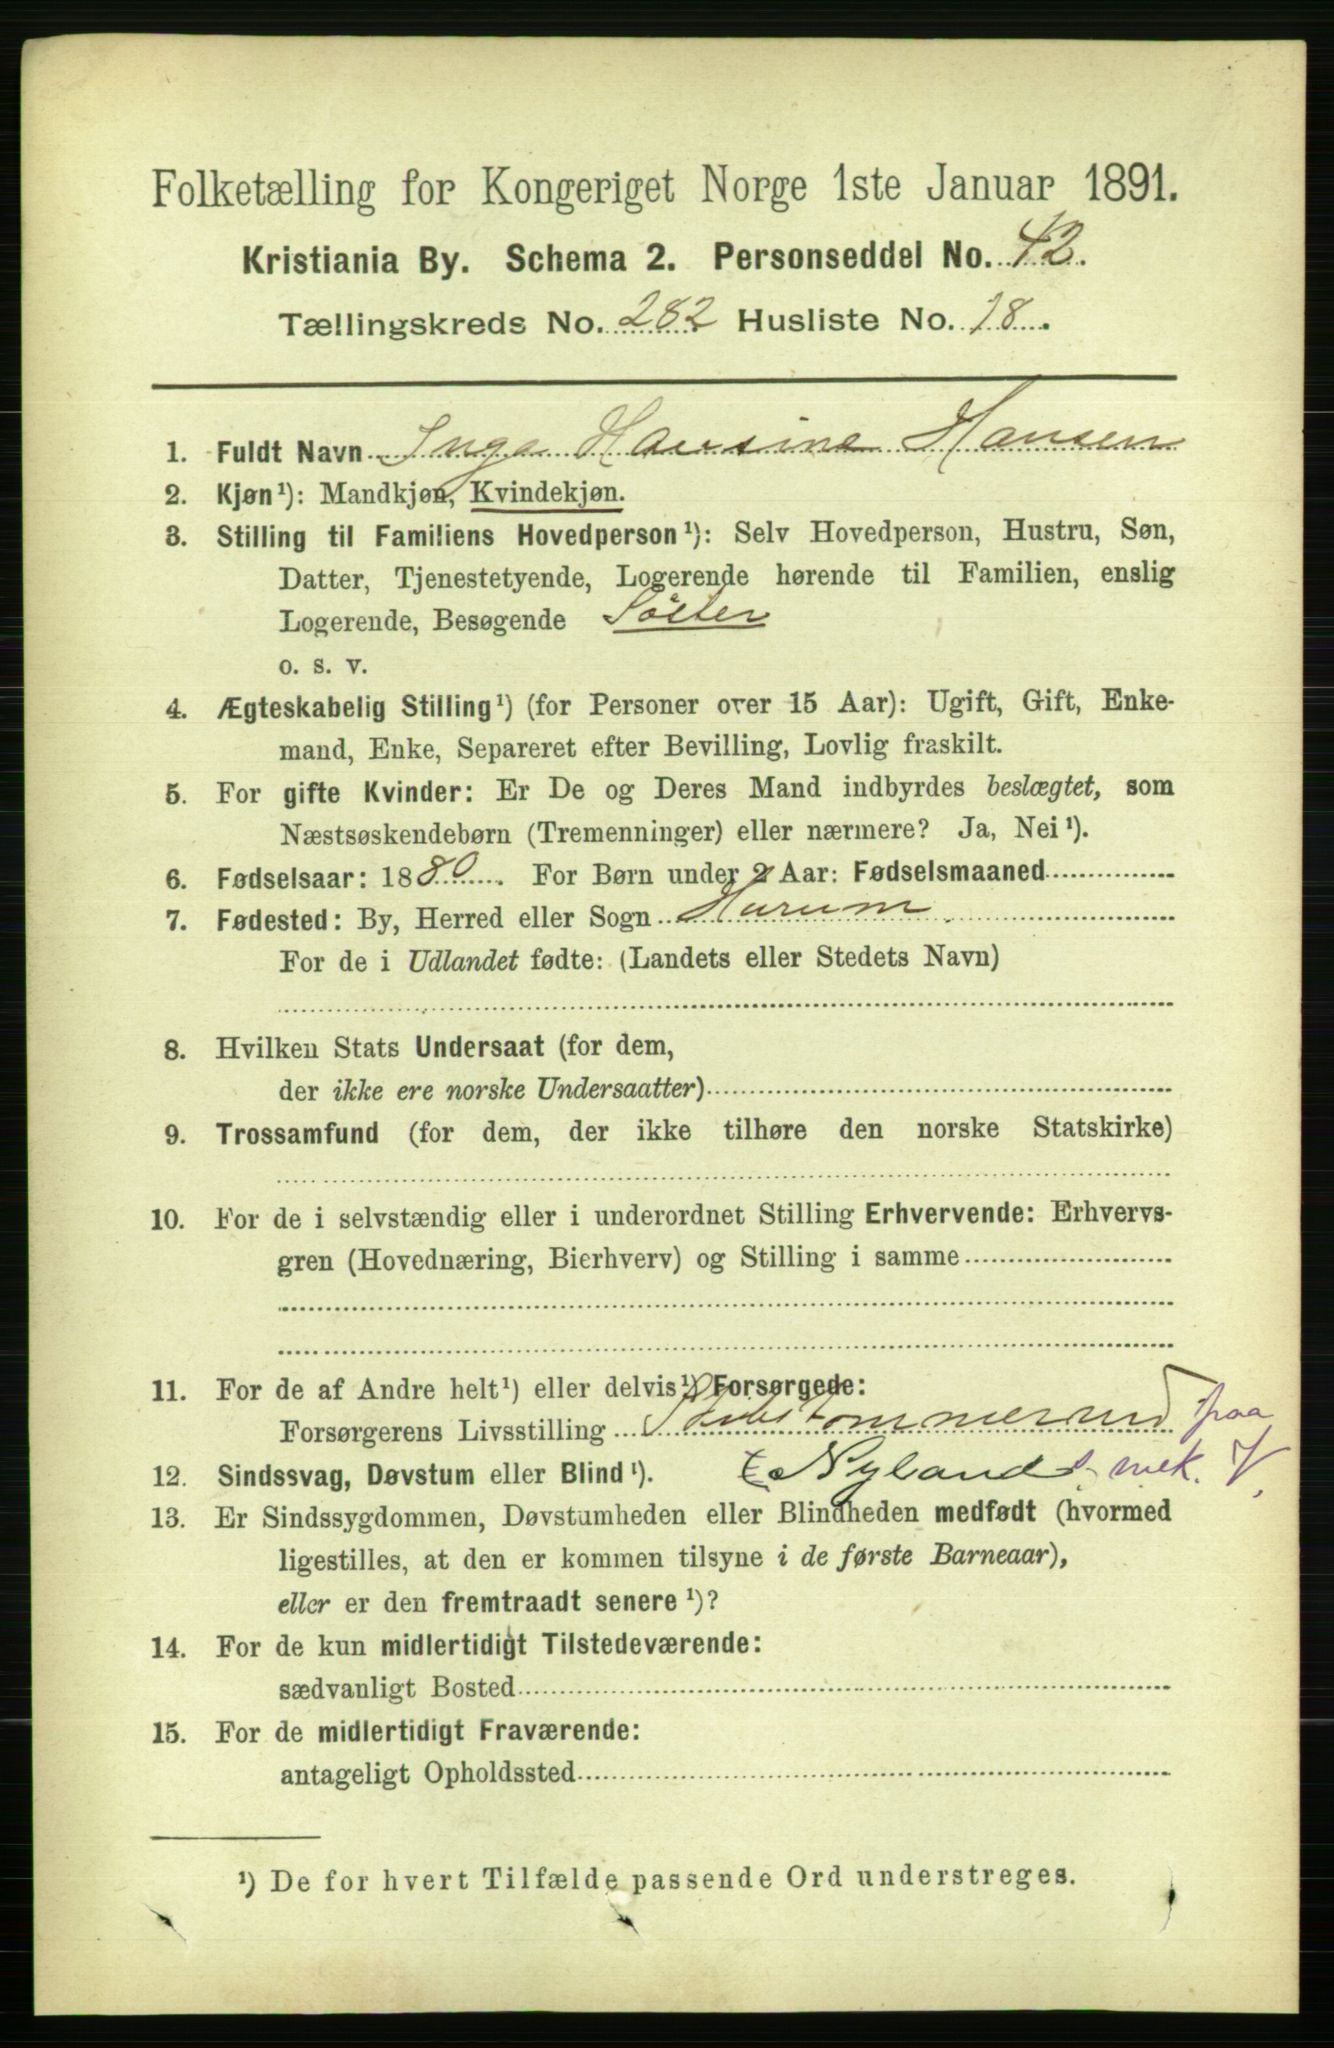 Folketælling for Kongeriget Norge 1ste Januar 1891.
Kristiania By. Schema 2. Personseddel No. 42.
Tællingskreds No. 282 Husliste No. 18.
1. Fuldt Navn Inga Hansine Hansen
2. Kjøn¹): Mandkjøn, Kvindekjøn.
3. Stilling til Familiens Hovedperson¹): Selv Hovedperson, Hustru, Søn,
Datter, Tjenestetyende, Logerende hørende til Familien, enslig
Logerende, Besøgende Söster
o. s. v.
4. Ægteskabelig Stilling¹) (for Personer over 15 Aar): Ugift, Gift, Enke-
mand, Enke, Separeret efter Bevilling, Lovlig fraskilt.
5. For gifte Kvinder: Er De og Deres Mand indbyrdes beslægtet, som
Næstsøskendebørn (Tremenninger) eller nærmere? Ja, Nei¹).
6. Fødselsaar: 1880. For Børn under 2 Aar: Fødselsmaaned
7. Fødested: By, Herred eller Sogn Hurum
For de i Udlandet fødte: (Landets eller Stedets Navn)
8. Hvilken Stats Undersaat (for dem,
der ikke ere norske Undersaatter)
9. Trossamfund (for dem, der ikke tilhøre den norske Statskirke)
10. For de i selvstændig eller i underordnet Stilling Erhvervende: Erhvervs-
gren (Hovednæring, Bierhverv) og Stilling i samme
11. For de af Andre helt¹) eller delvis¹) Forsørgede:
Forsørgerens Livsstilling Skibstømmermd paa
12. Sindssvag, Døvstum eller Blind¹). Nylands mek. V.
13. Er Sindssygdommen, Døvstumheden eller Blindheden medfødt (hvormed
ligestilles, at den er kommen tilsyne i de første Barneaar),
eller er den fremtraadt senere¹)?
14. For de kun midlertidigt Tilstedeværende:
sædvanligt Bosted
15. For de midlertidigt Fraværende:
antageligt Opholdssted
¹) De for hvert Tilfælde passende Ord understreges.